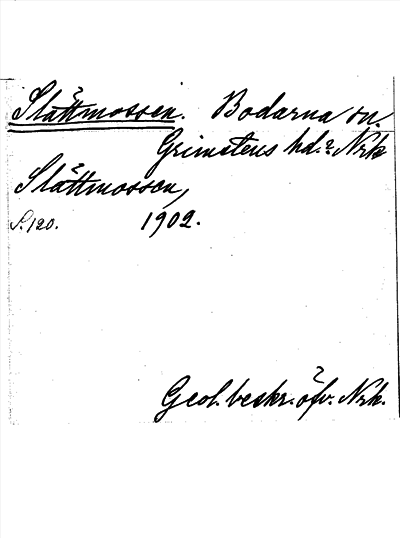 Slåttmossen. Bodarna sn.
Grimstens hd.? Nrk
Slåttmossen,
S. 120. 1902.
Geol. beskr. öfv. Nrk.